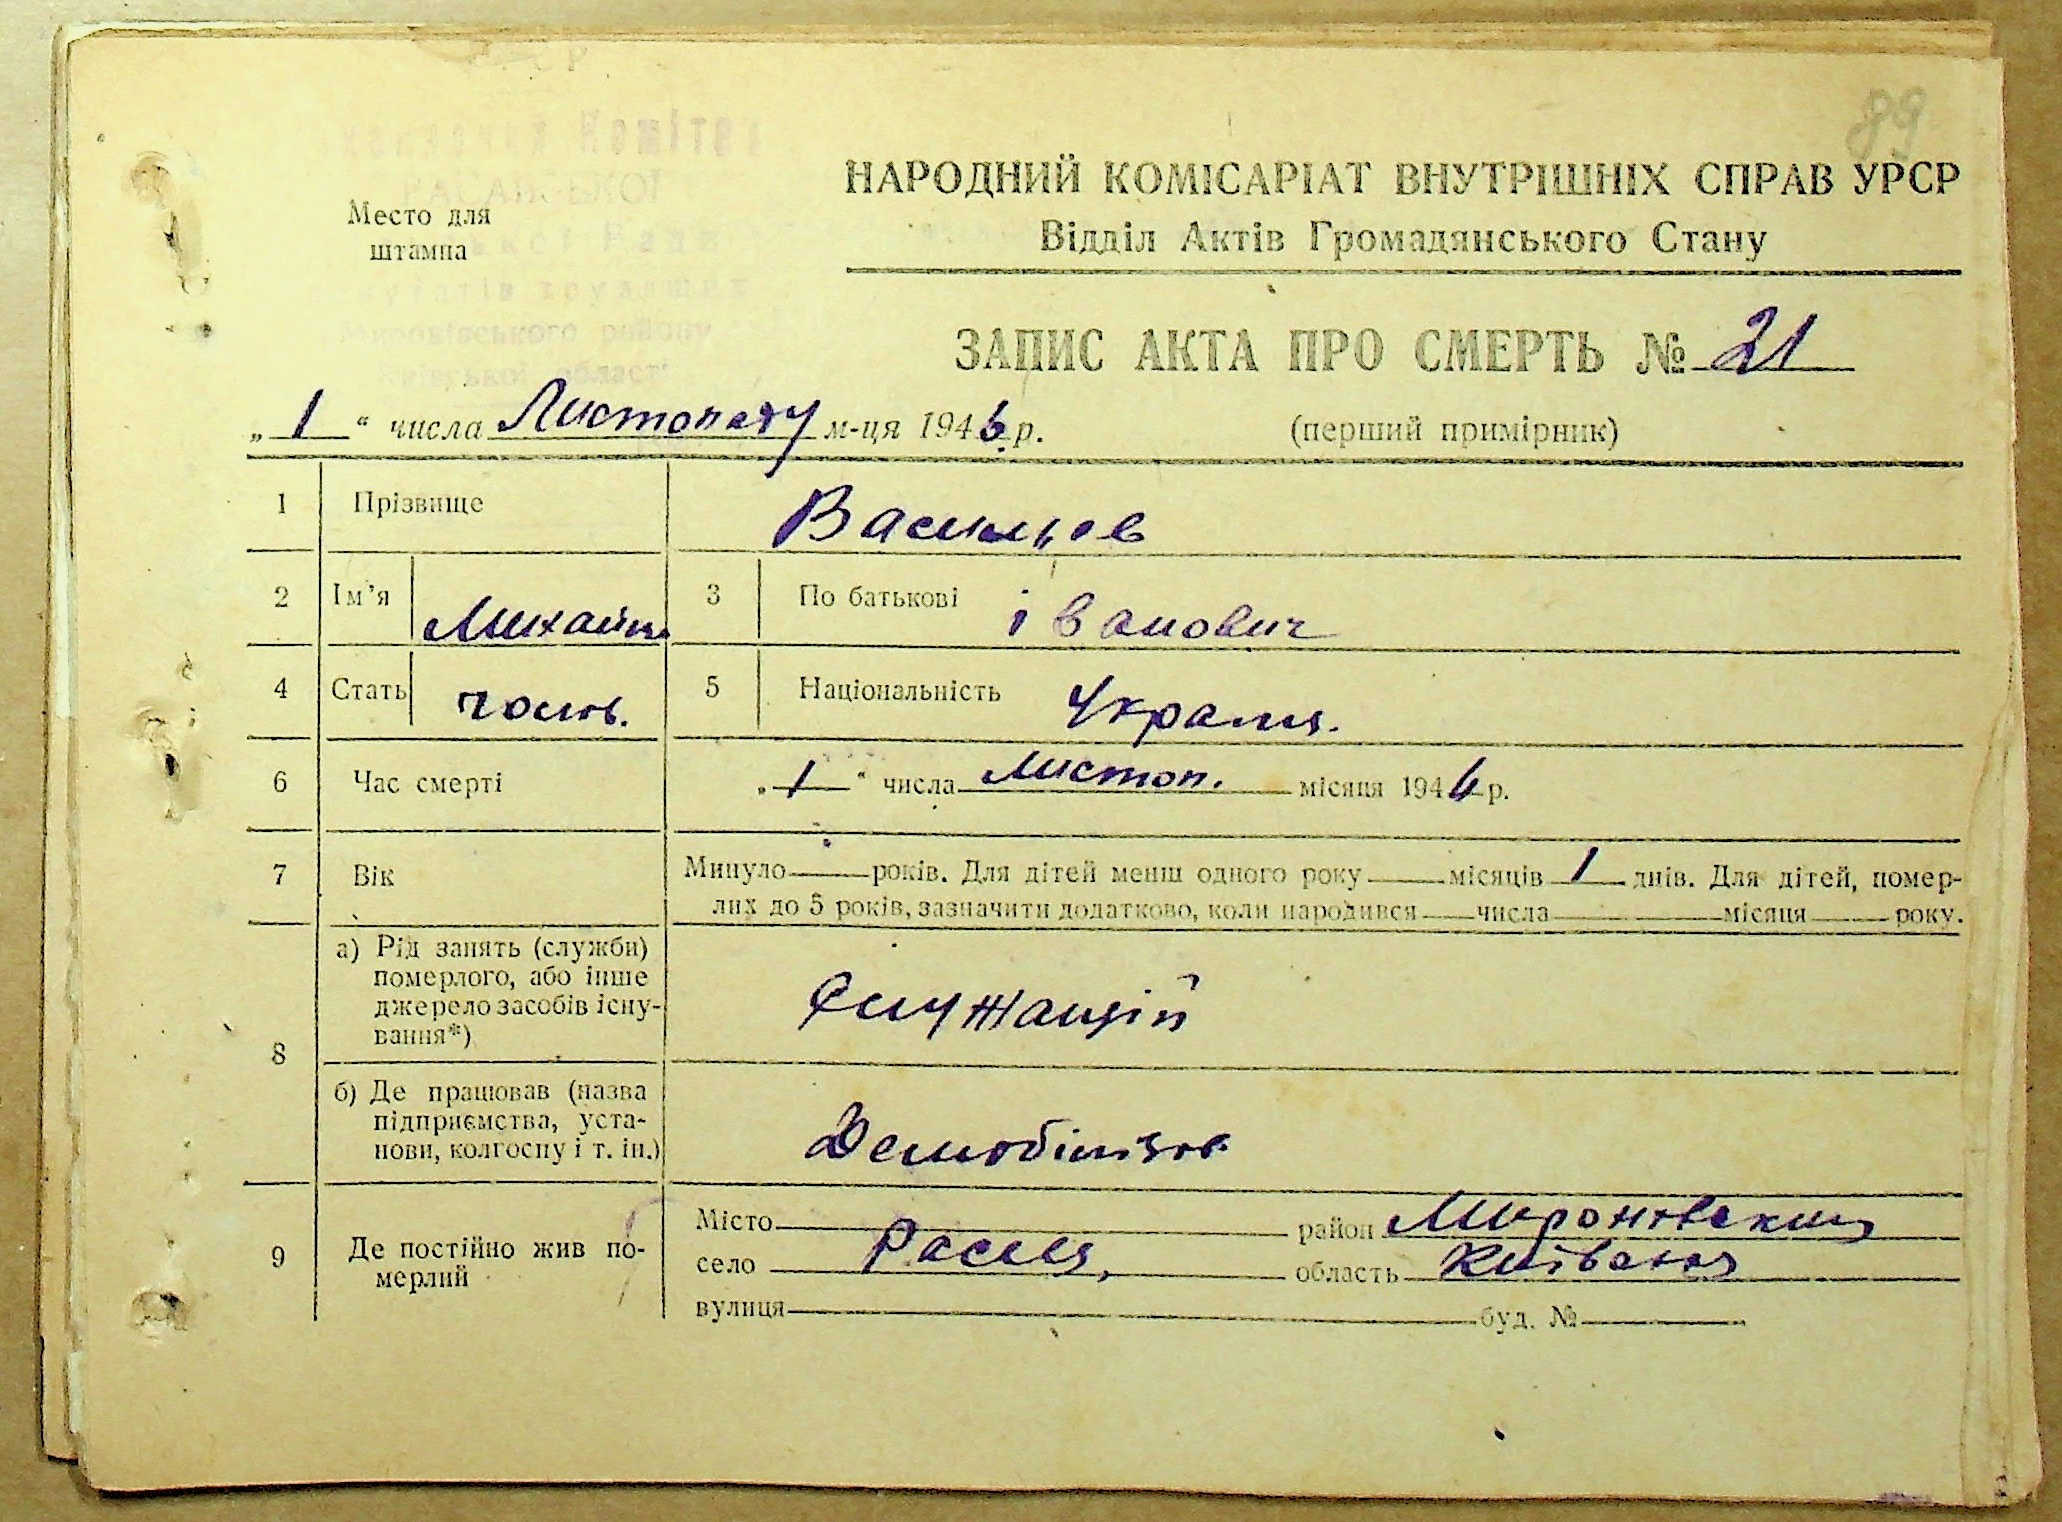 89
НАРОДНИЙ КОМІСАРІАТ ВНУТРІШНІХ СПРАВ УРСР
Место для штампа
Відділ Актів Громадянського Стану
ЗАПИС АКТА ПРО СМЕРТЬ № 21
„1“ числа Листопаду м-ця 1946 р. (перший примірник)
1 Прізвище Васильцов
2 Ім’я Михайло 3 По батькові іванович
4 Стать чолов. 5 Національність Україн.
6 Час смерті „1“ числа Листоп. місяця 1946 р.
7 Вік Минуло роківˑ Для дітей менш одного року місяців 1 днів. Для дітей, помер-
лих до 5 років, зазначити додатково, коли народився числа місяця року.
8 а) Рід занять (служби)
померлого, або інше
джерело засобів існу-
вання*) Служащій
б) Де працював (назва
підприємства, уста-
нови, колгоспу і т. ін.) Демобілізов.
9 Де постійно жив по-
мерлий
Місто район Мироновський
село область Київська
вулиця буд. №